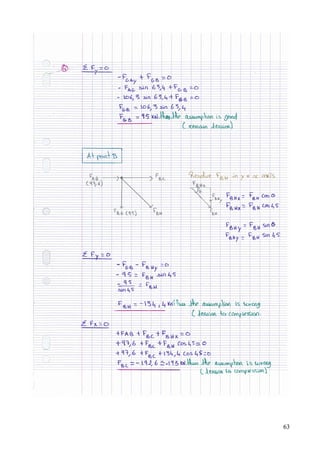 Σ Fy = 0
- FGAy + FGB = 0
- FAG sin 63,4 + FGB = 0
- 106,3 sin 63,4 + FGB = 0
FGB = 106,3 sin 63,4
FGB = 95 kN the assumption is good
( remain tension)
At point B
FAB
(97,6)
FBC
FBG (95)
FBH
Resolve FBH in y & x axis
FBHx
FBHy
FBH
FBHx = FBH cos θ
FBHx = FBH cos 45
FBHy = FBH sin θ
FBHy = FBH sin 45
Σ Fy = 0
- FGB - FBHy = 0
- 95 = FBH sin 45
- 95 / sin 45 = FBH
FBH = -134,4 kN the assumption is wrong
( tension to compression.
Σ Fx = 0
+ FAB + FBC + FBHx = 0
+ 97,6 + FBC + FBH cos 45 = 0
+ 97,6 + FBC + 134,4 cos 45 = 0
FBC = - 192,6 ≅ -193 kN the assumption is wrong
( tension to compression)
63